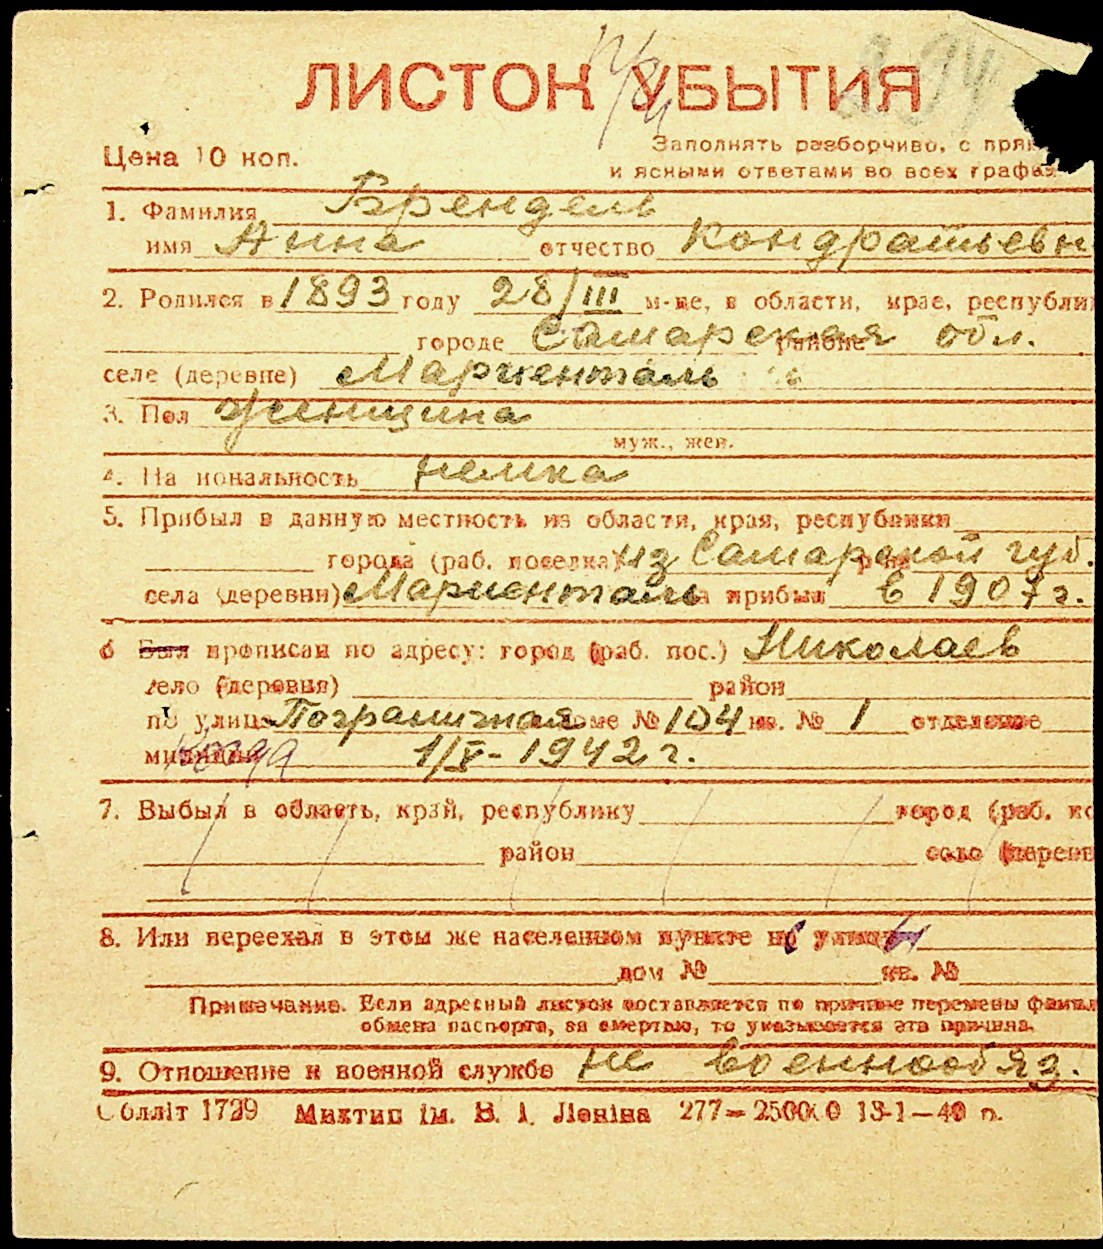 ЛИСТОК УБЫТИЯ
Цена 10 коп.
Заполнять разборчиво, с прям
и ясными ответами во всех графах
1. Фамилия Брендель
имя Анна отчество Кондратьевн
2. Родился в 1893 году 28/III м-це, в области, крае, республи
городе Самарская районе обл.
селе (деревне) Мариенталь
3. Пол женщина
муж., жен.
4. На иональность немка
5. Прибыл в данную местность из области, края, республики
города (раб. поселка) из Самарской губ.
села (деревни) Мариенталь прибыл в 1907 г.
6 Был прописан по адресу: город (раб. пос.) Николаев
село (деревня) район
по улице Пограничная доме № 104 кв. № 1 отделение
милиции когда 1/V-1942 г.
7. Выбыл в область, край, республику город (раб. по
район село (деревн
8. Или переехал в этом же населенном пункте по улице
дом № кв. №
Примечание. Если адресный листок составляется по причине перемены фамил
обмена паспорта, за смертью, то указывается эта причина.
9. Отношение к военной службе не военнообяз.
Облліт 1729 Миктип ім. В. І. Леніна 277—25000 0 13-1—40 р.